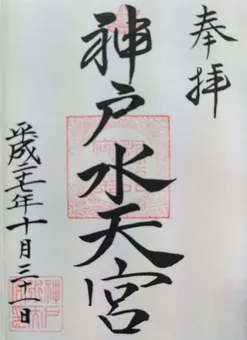 奉拝
神戸水天宮
平成二七年十月三十一日